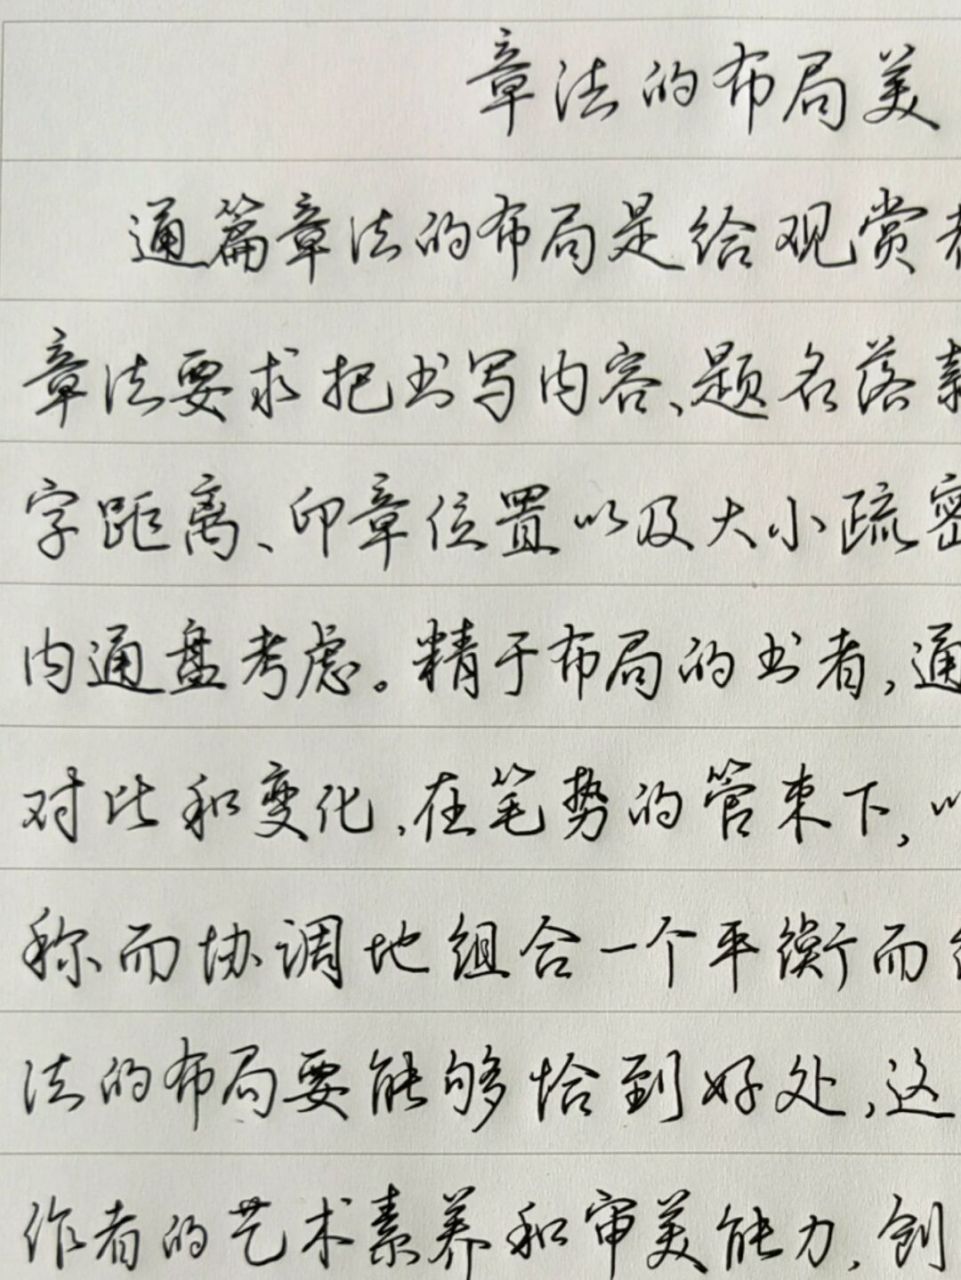 章法的布局美
通篇章法的布局是给观赏者
章法要求把书写内容、题名落款
字距离、印章位置以及大小疏密
内通盘考虑。精于布局的书者,通
对比和变化,在笔势的管束下,以
称而协调地组合一个平衡而
法的布局要能够恰到好处,这
作者的艺术素养和审美能力,创